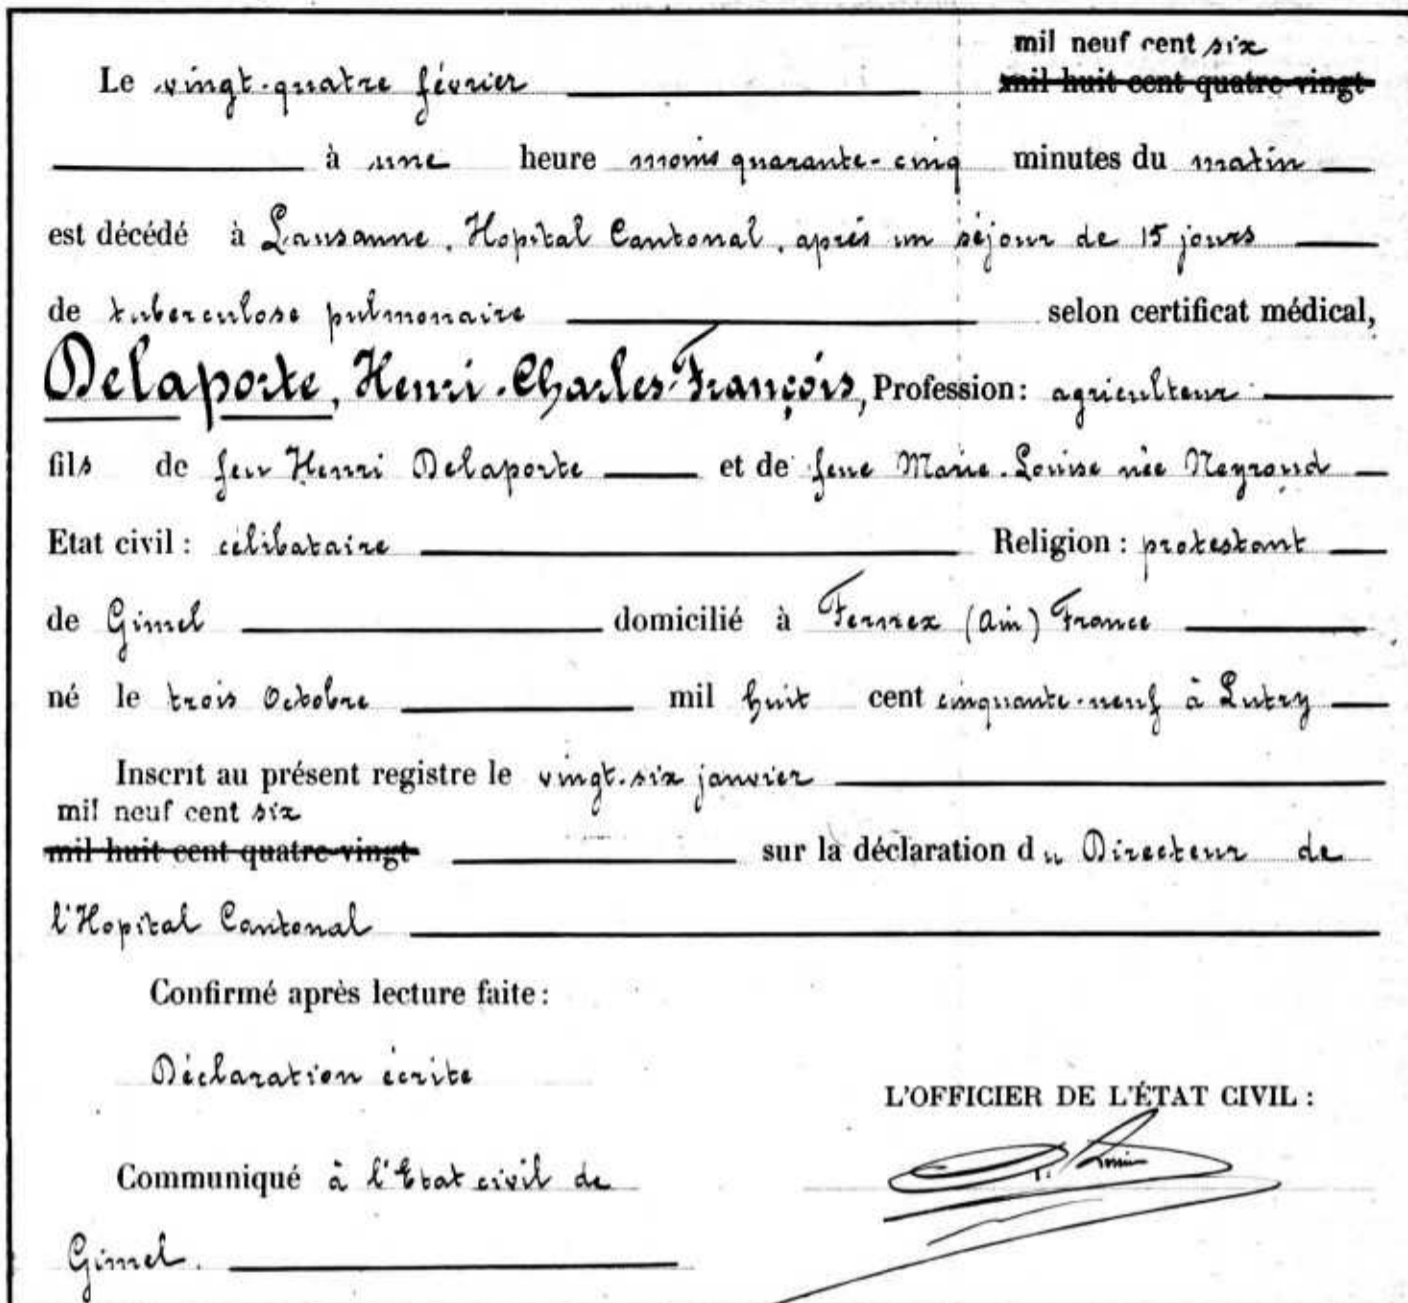 mil neuf cent six
Le vingt-quatre février mil huit cent quatre-vingt
à une heure moins quarante-cinq minutes du matin
est décédé à Lausanne, Hopital Cantonal, après un séjour de 15 jours
de tuberculose pulmonaire selon certificat médical,
Delaporte, Henri-Charles-François, Profession: agriculteur
fils de feu Henri Delaporte et de feue Marie-Louise née Neyroud
Etat civil: célibataire Religion: protestant
de Gimel domicilié à Fernex (Ain) France
né le trois Octobre mil huit cent cinquante-neuf à Lutry
Inscrit au présent registre le vingt-six janvier
mil neuf cent six
mil huit cent quatre-vingt sur la déclaration du Directeur de
l'Hopital Cantonal
Confirmé après lecture faite:
Déclaration écrite
L'OFFICIER DE L'ÉTAT CIVIL:
Communiqué à l'Etat civil de
Gimel.